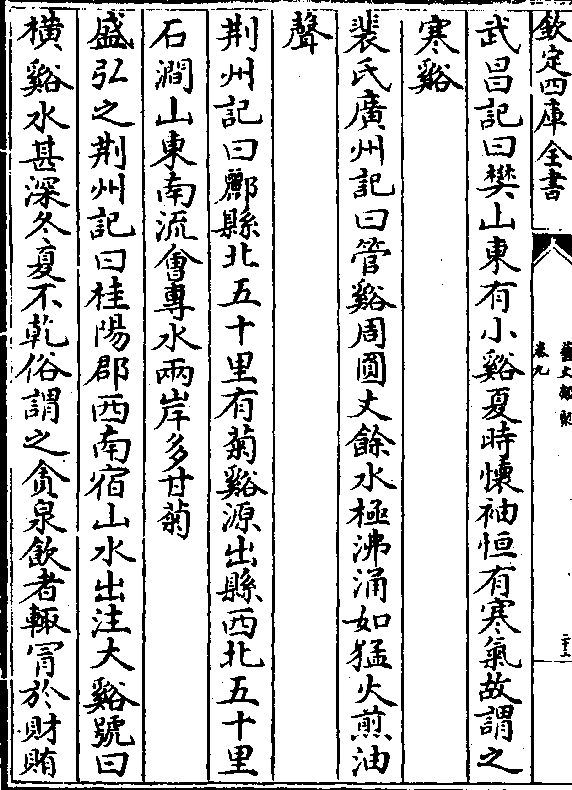 欽定四庫全書
藝文類聚
卷九
武昌記曰樊山東有小谿夏時懷袖恒有寒氣故謂之
寒谿
裴氏廣州記曰管谿周圓丈餘水極沸涌如猛火煎油
聲
荆州記曰酈縣北五十里有菊谿源出縣西北五十里
石澗山東南流會專水兩岸多甘菊
盛弘之荆州記曰桂陽郡西南宿山水出注大谿號曰
橫谿水甚深冬夏不乾俗謂之貪泉飲者輙冐於財賄